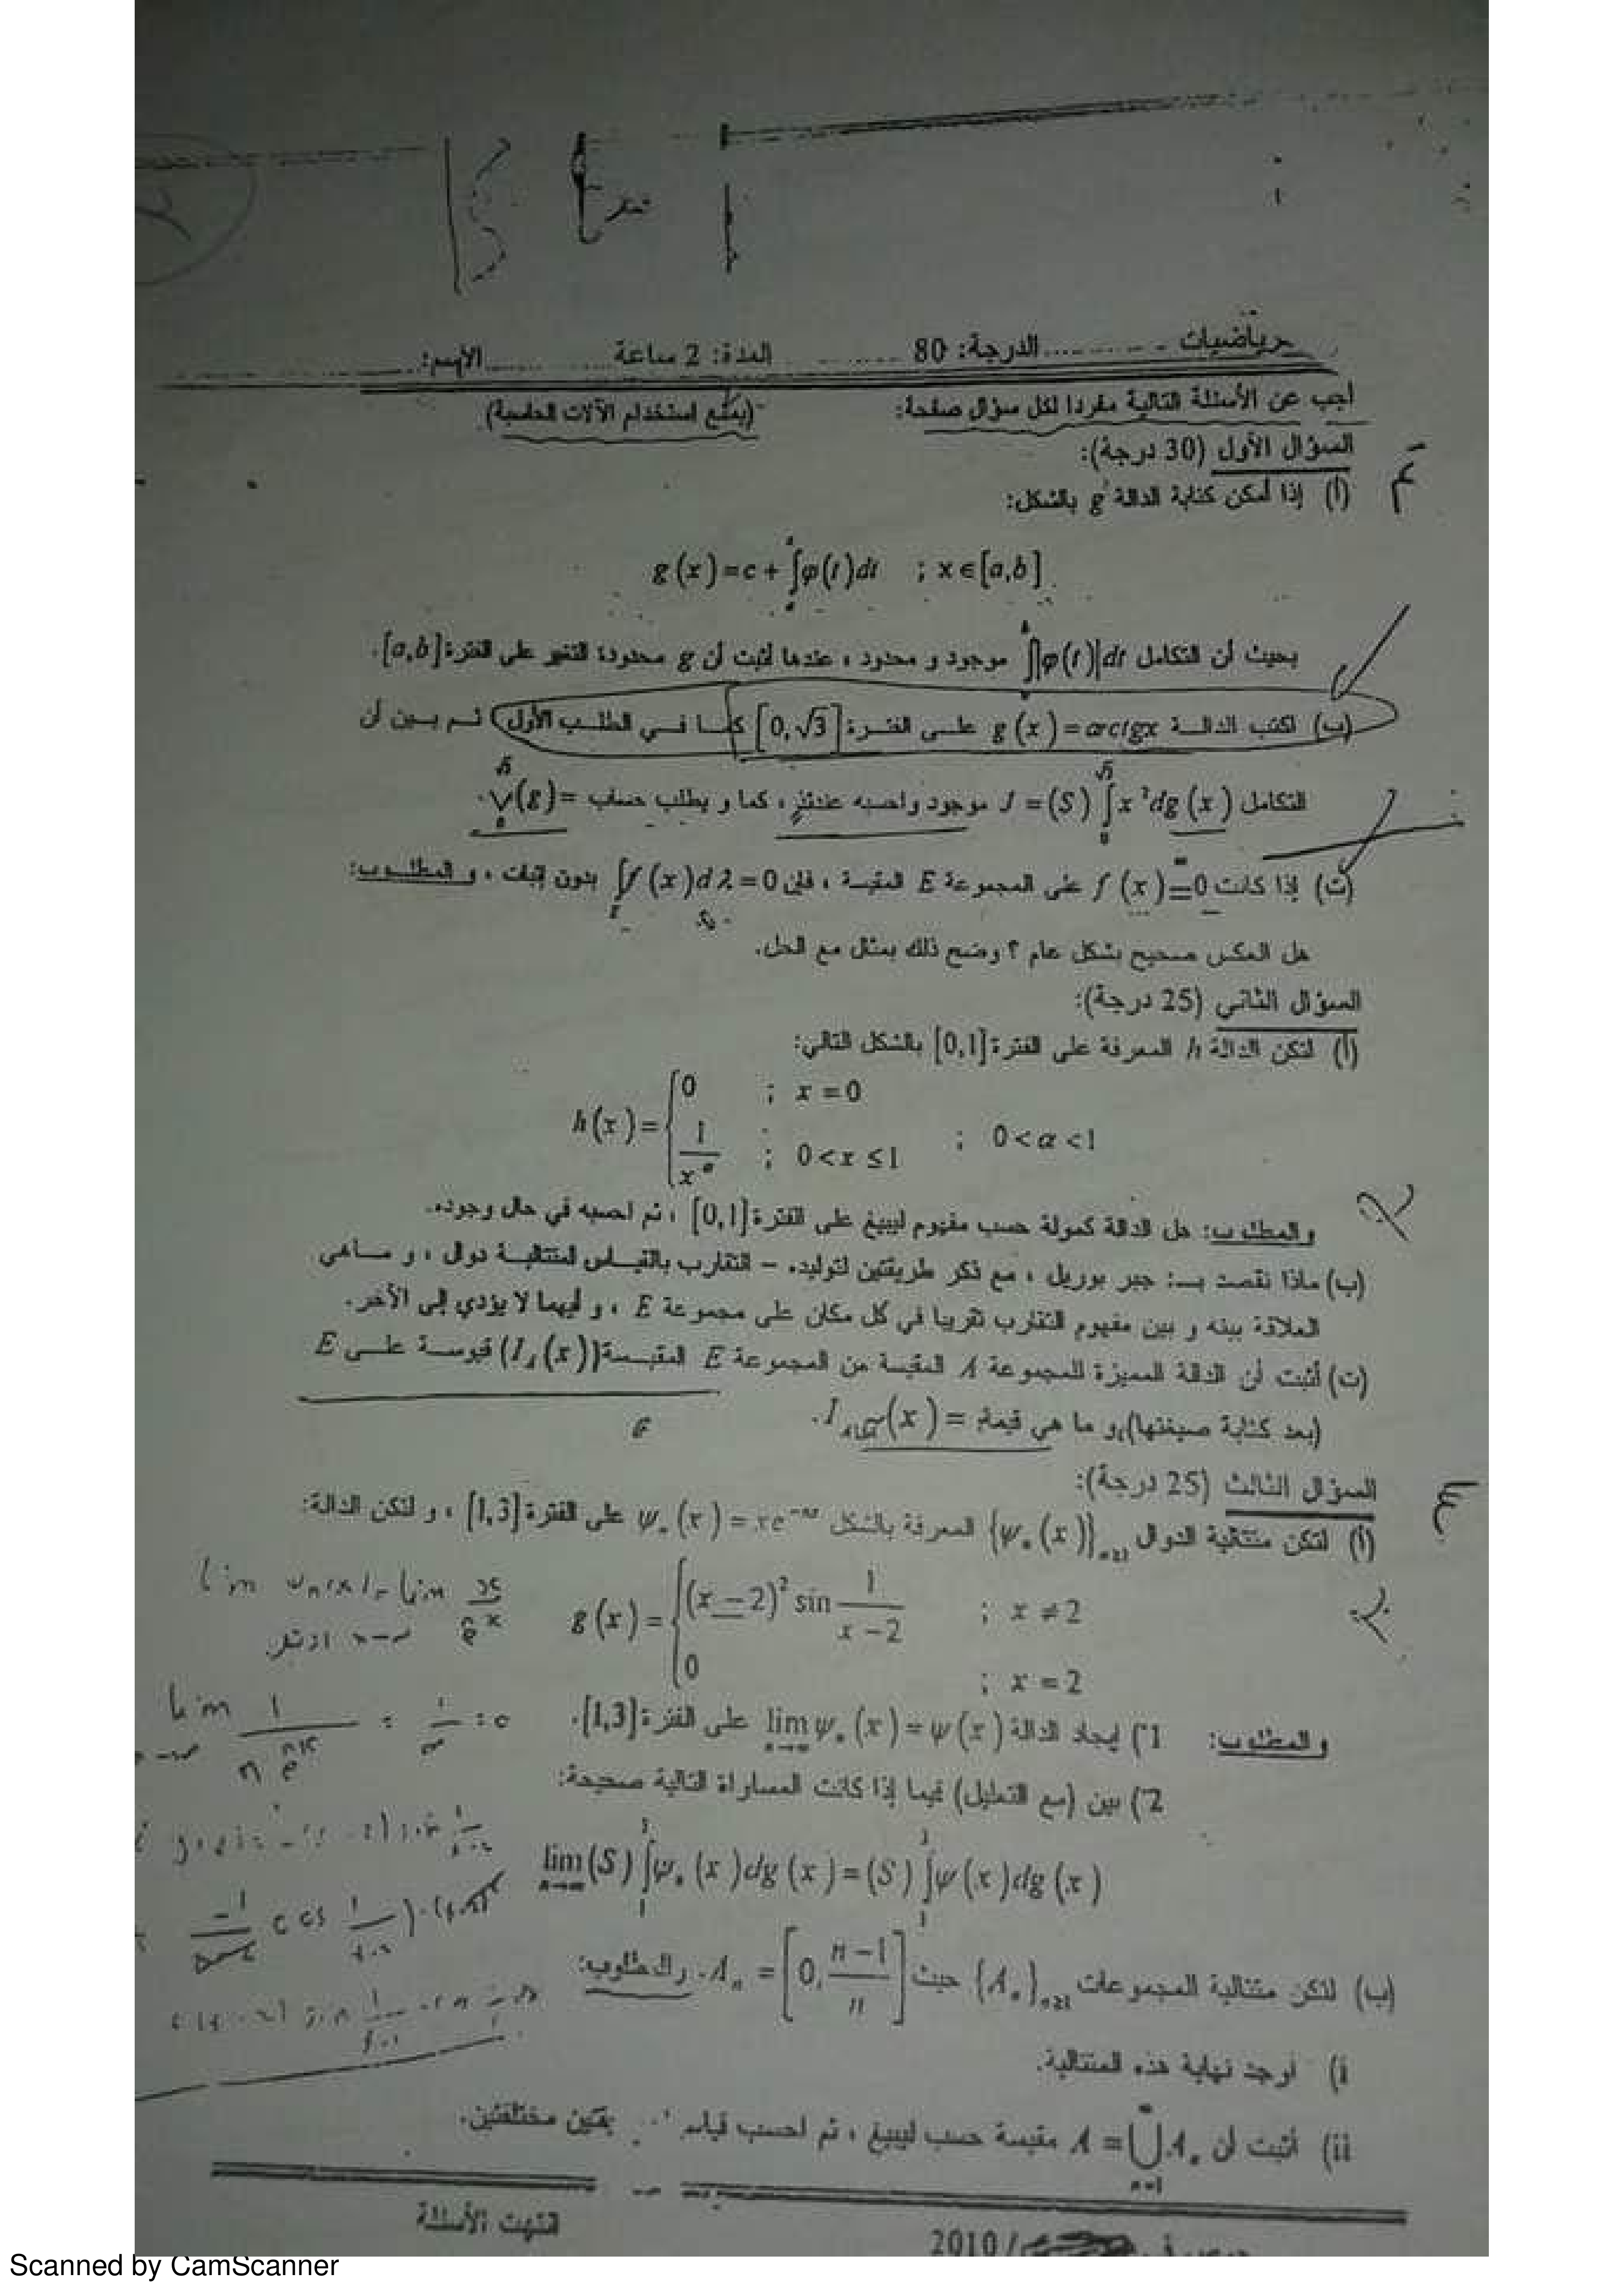 رياضيات ........... الدرجة: 80 ........ المدة: 2 ساعة ........ الاسم: ........
أجب عن الأسئلة التالية مفردا لكل سؤال صفحة: (يمنع استخدام الآلات الحاسبة)
السؤال الأول (30 درجة):
(أ) إذا أمكن كتابة الدالة g بالشكل:
g(x) = c + ∫φ(t)dt ; x ∈ [a,b]
بحيث أن التكامل ∫|φ(t)|dt موجود و محدود ، عندها أثبت أن g محدودة التغير على الفترة [a,b].
(ب) اكتب الدالة g(x) = arctgx على الفترة [0,√3] كما في الطلب الأول ثم بين أن
التكامل J = (S) ∫x²dg(x) موجود واحسبه عندئذ ، كما و يطلب حساب V(g)=.
(ت) إذا كانت f(x) = 0 على المجموعة E المقيسة ، فإن ∫f(x)dλ = 0 بدون إثبات ، و المطلوب:
هل العكس صحيح بشكل عام ؟ وضح ذلك بمثال مع الحل.
السؤال الثاني (25 درجة):
(أ) لتكن الدالة h المعرفة على الفترة [0,1] بالشكل التالي:
h(x) = { 0 ; x = 0
1/x^α ; 0 < x ≤ 1 ; 0 < α < 1
و المطلوب: هل الدالة كمولة حسب مفهوم ليبيغ على الفترة [0,1] ، ثم احسبه في حال وجوده.
(ب) ماذا نقصد بـ: جبر بوريل ، مع ذكر طريقتين لتوليده. – التقارب بالقياس لمتتالية دوال ، و ماهي
العلاقة بينه و بين مفهوم التقارب تقريبا في كل مكان على مجموعة E ، و أيهما لا يؤدي إلى الآخر.
(ت) أثبت أن الدالة المميزة للمجموعة A المقيسة من المجموعة E المقيسة (I_A(x)) قيوسة على E
(بعد كتابة صيغتها) و ما هي قيمة = (x).
السؤال الثالث (25 درجة):
(أ) لتكن متتالية الدوال {ψₙ(x)}ₙ≥₁ المعرفة بالشكل ψₙ(x) = xe^{-nx} على الفترة [1,3] ، و لتكن الدالة:
g(x) = { (x − 2)² sin 1/(x − 2) ; x ≠ 2
0 ; x = 2
و المطلوب: 1) إيجاد الدالة lim ψₙ(x) = ψ(x) على الفترة [1,3].
2) بين (مع التعليل) فيما إذا كانت المساواة التالية صحيحة:
lim (S) ∫ψₙ(x)dg(x) = (S) ∫ψ(x)dg(x)
(ب) لتكن متتالية المجموعات {Aₙ}ₙ≥₁ حيث Aₙ = [0, (n−1)/n]. والمطلوب:
i) أوجد نهاية هذه المتتالية.
ii) أثبت أن A = ⋃Aₙ مقيسة حسب ليبيغ ، ثم احسب قياس بطريقتين مختلفتين.
انتهت الأسئلة
2010 /
Scanned by CamScanner